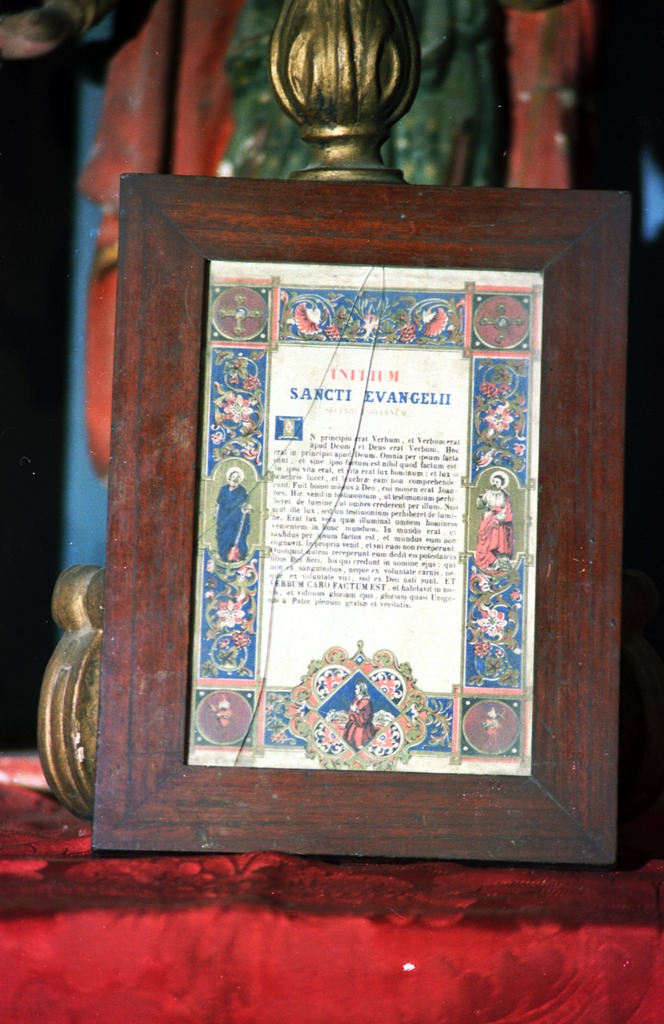 INITIUM
SANCTI EVANGELII
SECUNDUM JOANNEM.
IN principio erat Verbum, et Verbum erat
apud Deum, et Deus erat Verbum. Hoc
erat in principio apud Deum. Omnia per ipsum facta
sunt, et sine ipso factum est nihil quod factum est
in ipso vita erat, et vita erat lux hominum; et lux in
tenebris lucet, et tenebræ eam non comprehende
runt. Fuit homo missus à Deo, cui nomen erat Joan-
nes. Hic venit in testimonium, ut testimonium perhi-
beret de lumine, ut omnes crederent per illum. Non
erat ille lux, sed ut testimonium perhiberet de lumi-
ne. Erat lux vera quæ illuminat omnem hominem
venientem in hunc mundum. In mundo erat, et
mundus per ipsum factus est, et mundus eum non
cognovit. In propria venit, et sui eum non receperunt
Quotquot autem receperunt eum dedit eis potestatem
filios Dei fieri, his qui credunt in nomine ejus; qui
non ex sanguinibus, neque ex voluntate carnis, ne-
que ex voluntate viri, sed ex Deo nati sunt. ET
VERBUM CARO FACTUM EST, et habitavit in no-
bis, et vidimus gloriam ejus, gloriam quasi Unige-
niti à Patre plenum gratiæ et veritatis.